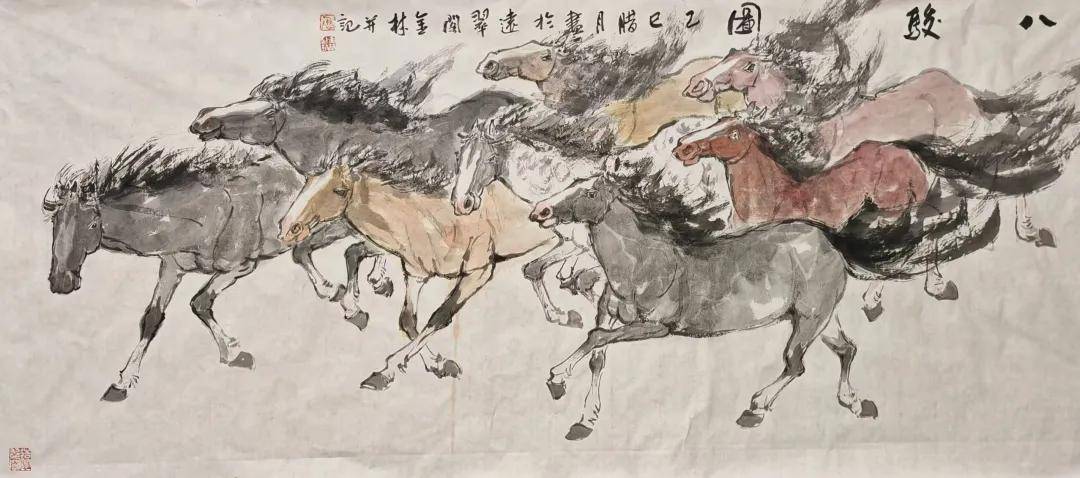 八駿圖乙巳腊月畫於遠翠閣金林并記